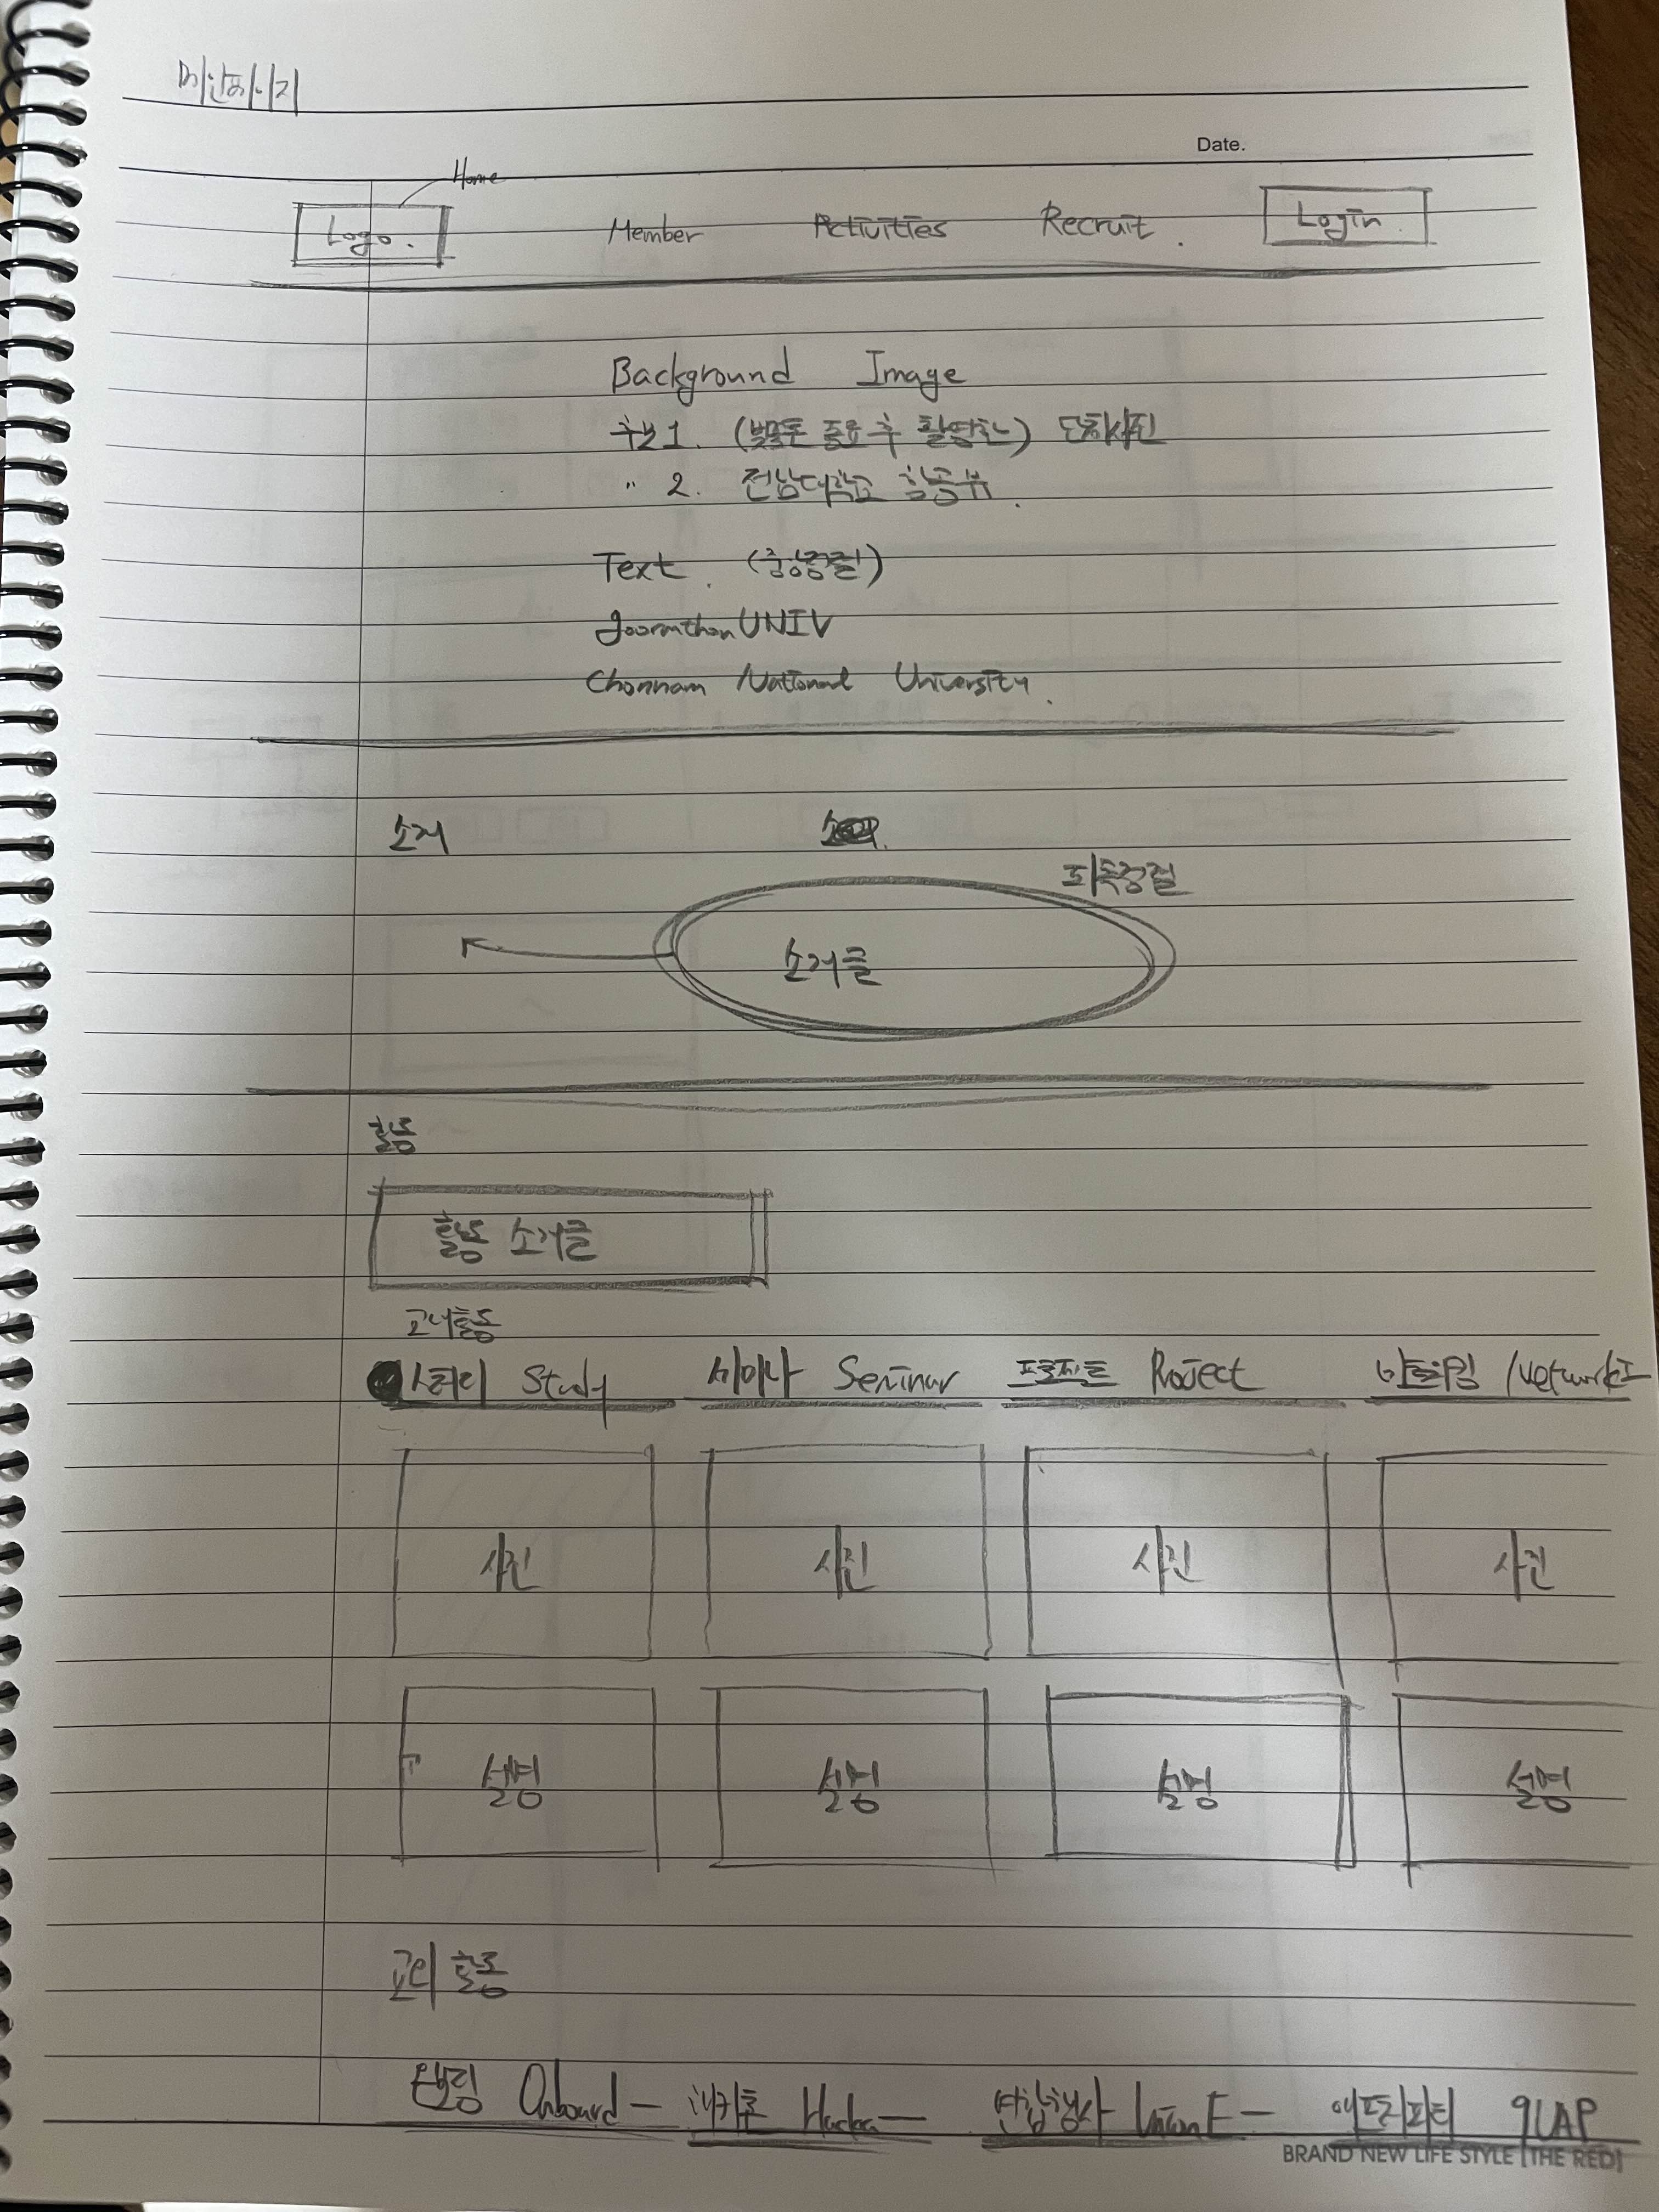 메인페이지
Date.
Home
Logo. Member Activities Recruit. Login
Background Image
후보1. (벚꽃톤 종료 후 촬영한) 단체사진
" 2. 전남대학교 항공뷰.
Text. (중앙정렬)
goormthon UNIV
Chonnam National University.
소개
좌측정렬
소개글
활동
활동 소개글
교내활동
스터디 Study 세미나 Seminar 프로젝트 Project 네트워킹
사진 사진 사진 사진
설명 설명 설명 설명
교외 활동
Onboard— 해커톤 Hacka— 연합행사 Union E— 애프터파티 9LAP
BRAND NEW LIFE STYLE [THE RED]